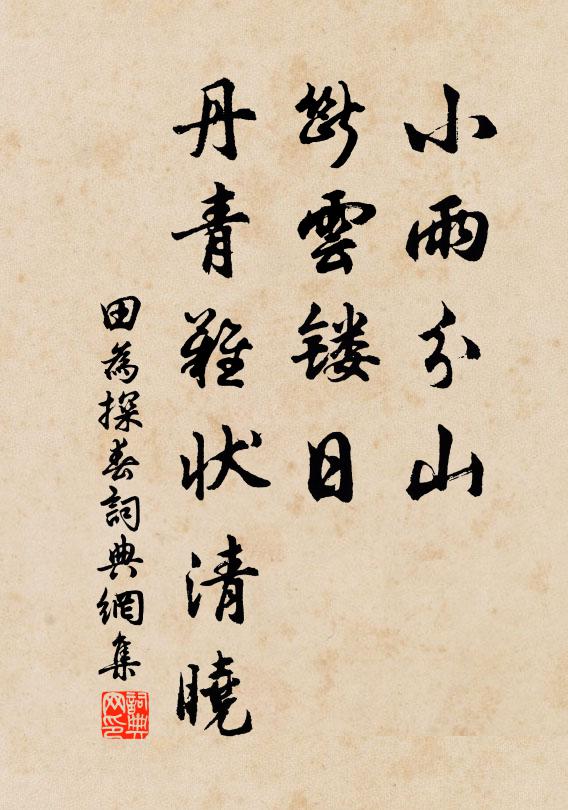 小雨分山
断雲镂日
丹青難状清曉
田為探春詞典網集
詞典网印